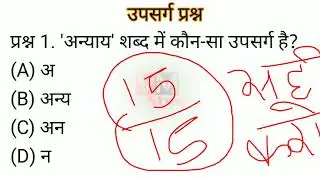 उपसर्ग प्रश्न
प्रश्न 1. 'अन्याय' शब्द में कौन-सा उपसर्ग है?
(A) अ
(B) अन्य
(C) अन
(D) न
15
15
सही